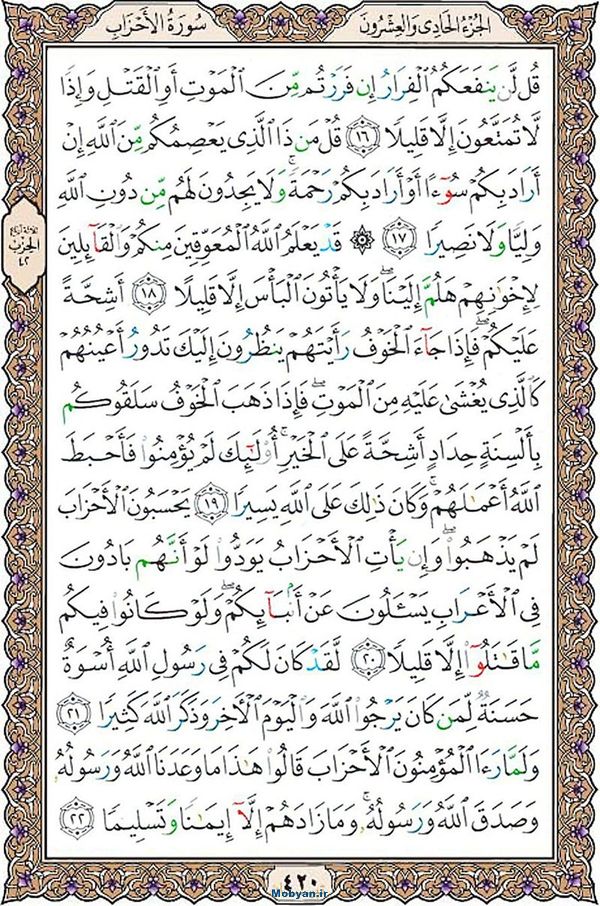 الجُزْءُ الحَادِى وَالعِشْرُونَ
سُورَةُ الأَحْزَابِ
قُل لَّن يَنفَعَكُمُ ٱلۡفِرَارُ إِن فَرَرۡتُم مِّنَ ٱلۡمَوۡتِ أَوِ ٱلۡقَتۡلِ وَإِذٗا
لَّا تُمَتَّعُونَ إِلَّا قَلِيلٗا ١٦ قُلۡ مَن ذَا ٱلَّذِي يَعۡصِمُكُم مِّنَ ٱللَّهِ إِنۡ
أَرَادَ بِكُمۡ سُوٓءًا أَوۡ أَرَادَ بِكُمۡ رَحۡمَةٗۚ وَلَا يَجِدُونَ لَهُم مِّن دُونِ ٱللَّهِ
وَلِيّٗا وَلَا نَصِيرٗا ١٧ ۞ قَدۡ يَعۡلَمُ ٱللَّهُ ٱلۡمُعَوِّقِينَ مِنكُمۡ وَٱلۡقَآئِلِينَ
لِإِخۡوَٰنِهِمۡ هَلُمَّ إِلَيۡنَاۖ وَلَا يَأۡتُونَ ٱلۡبَأۡسَ إِلَّا قَلِيلًا ١٨ أَشِحَّةً
عَلَيۡكُمۡۖ فَإِذَا جَآءَ ٱلۡخَوۡفُ رَأَيۡتَهُمۡ يَنظُرُونَ إِلَيۡكَ تَدُورُ أَعۡيُنُهُمۡ
كَٱلَّذِي يُغۡشَىٰ عَلَيۡهِ مِنَ ٱلۡمَوۡتِۖ فَإِذَا ذَهَبَ ٱلۡخَوۡفُ سَلَقُوكُم
بِأَلۡسِنَةٍ حِدَادٍ أَشِحَّةً عَلَى ٱلۡخَيۡرِۚ أُوْلَٰٓئِكَ لَمۡ يُؤۡمِنُواْ فَأَحۡبَطَ
ٱللَّهُ أَعۡمَٰلَهُمۡۚ وَكَانَ ذَٰلِكَ عَلَى ٱللَّهِ يَسِيرٗا ١٩ يَحۡسَبُونَ ٱلۡأَحۡزَابَ
لَمۡ يَذۡهَبُواْۖ وَإِن يَأۡتِ ٱلۡأَحۡزَابُ يَوَدُّواْ لَوۡ أَنَّهُم بَادُونَ
فِي ٱلۡأَعۡرَابِ يَسۡـَٔلُونَ عَنۡ أَنۢبَآئِكُمۡۖ وَلَوۡ كَانُواْ فِيكُم
مَّا قَٰتَلُوٓاْ إِلَّا قَلِيلٗا ٢٠ لَّقَدۡ كَانَ لَكُمۡ فِي رَسُولِ ٱللَّهِ أُسۡوَةٌ
حَسَنَةٞ لِّمَن كَانَ يَرۡجُواْ ٱللَّهَ وَٱلۡيَوۡمَ ٱلۡأٓخِرَ وَذَكَرَ ٱللَّهَ كَثِيرٗا ٢١
وَلَمَّا رَءَا ٱلۡمُؤۡمِنُونَ ٱلۡأَحۡزَابَ قَالُواْ هَٰذَا مَا وَعَدَنَا ٱللَّهُ وَرَسُولُهُۥ
وَصَدَقَ ٱللَّهُ وَرَسُولُهُۥۚ وَمَا زَادَهُمۡ إِلَّآ إِيمَٰنٗا وَتَسۡلِيمٗا ٢٢
ثلاثة أرباع
الحزب
٤٢
٤٢٠
Mobyan.ir